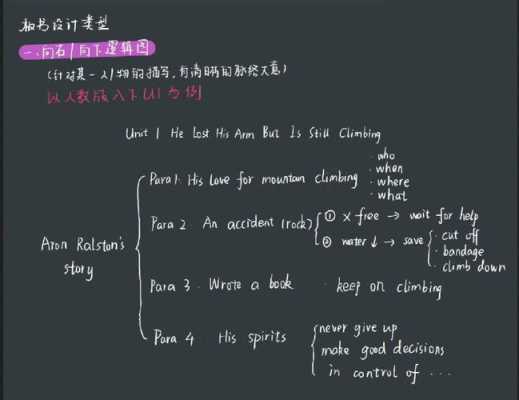 板书设计类型
一.向右/向下逻辑图
(针对某一人/物的描写,有清晰的脉络大意)
以人教版八下U1为例
Unit 1 He Lost His Arm But Is Still Climbing
Aron Ralston's
story
Para 1. His love for mountain climbing
· who
· when
· where
· what
Para 2 An accident (rock)
① × free → wait for help
② water ↓ → save
· cut off
· bandage
· climb down
Para 3. Wrote a book · keep on climbing
Para 4 His spirits
never give up
make good decisions
in control of ...